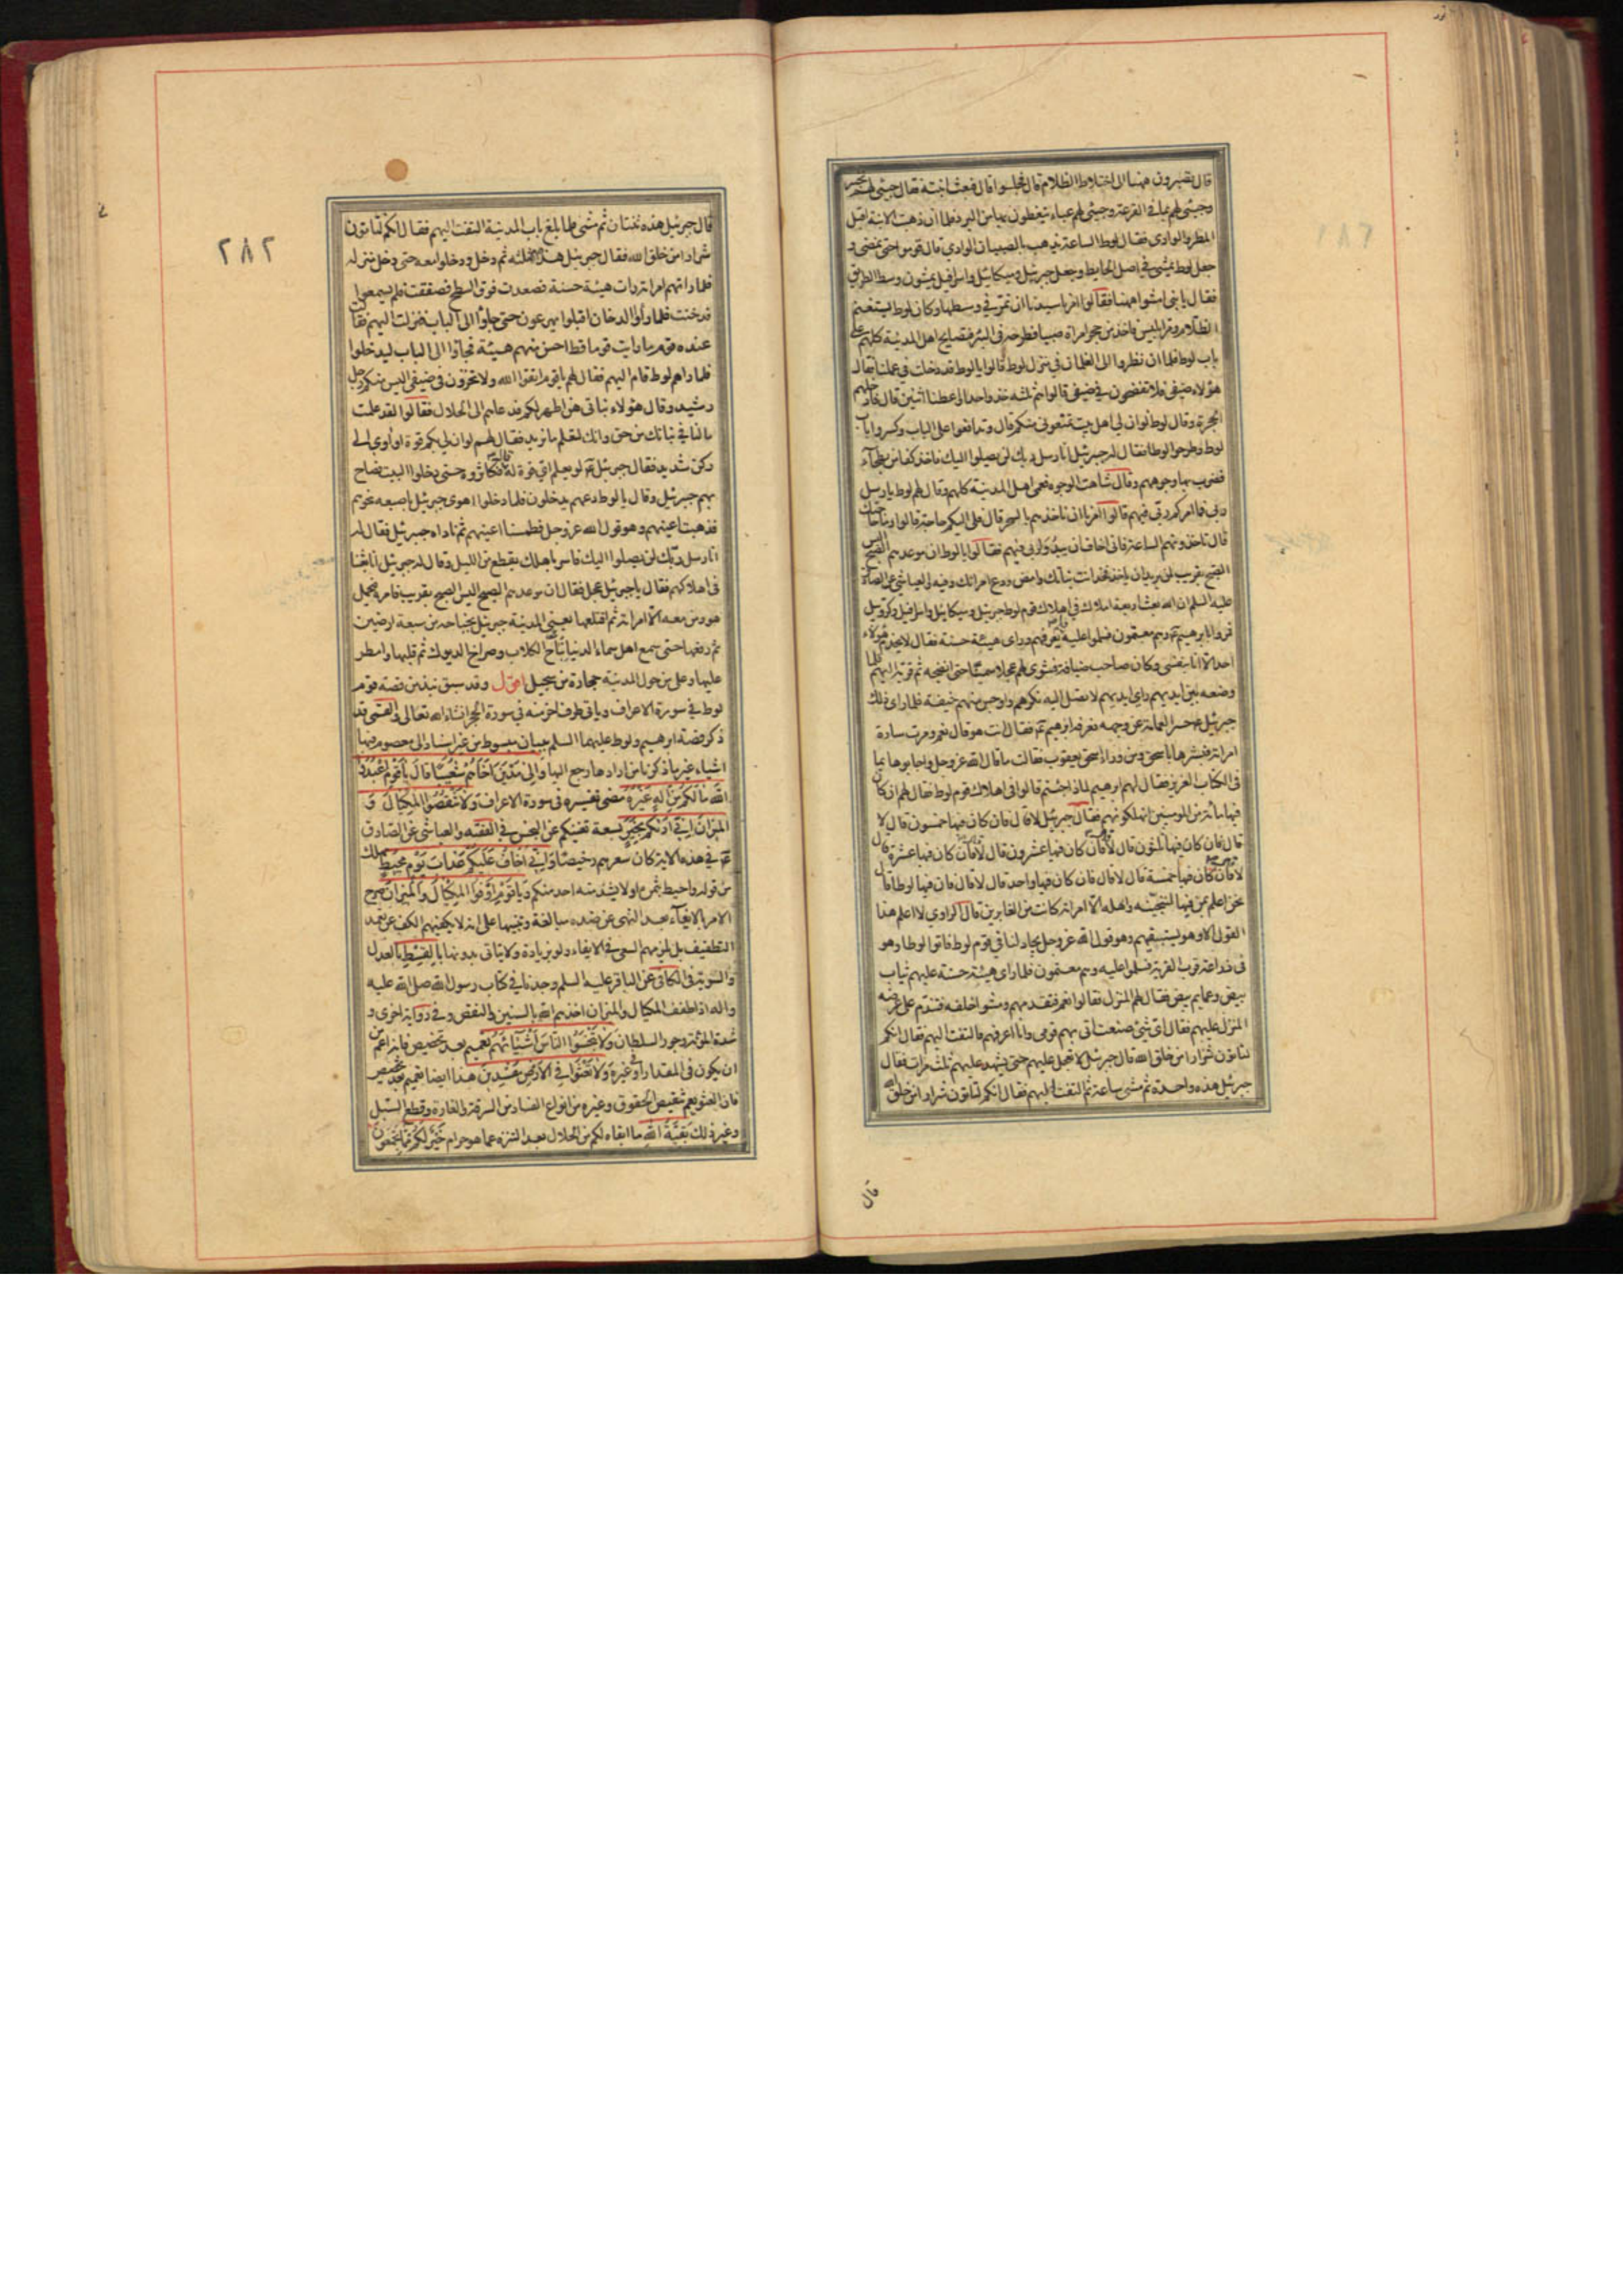 قال تصبرون ههنا الى اختلاط الظلام قال فجلسوا قال فبعث ابنته فقال جيئى لهم بخبز
وجيئى لهم بماء في القرعة وجيئى لهم عباء يتغطون بها من البرد فلما ان ذهبت الابنة اقبل
المطر والوادى فقال لوط الساعة يذهب بالصبيان الوادى قال قوموا حتى نمضى و
جعل لوط يمشى في اصل الحايط وجعل جبرئيل وميكائيل واسرافيل يمشون وسط الطريق
فقال يا بنى امشوا ههنا فقالوا امرنا سيدنا ان نمر في وسطها وكان لوط يستغنم
الظلام ومر ابليس فاخذ من حجر امراة صبيا فطرحه في البئر فتصايح اهل المدينة كلهم على
باب لوط فلما ان نظروا الى الغلمان في منزل لوط قالوا يا لوط قد دخلت في عملنا فقال
هؤلاء ضيفى فلا تفضحون في ضيفى قالوا هم ثلثه خذ واحدا واعطنا اثنين قال فادخلهم
الحجرة وقال لوط لو ان لى اهل بيت تمنعونى منكم قال وتدافعوا على الباب وكسروا باب
لوط وطرحوا لوطا فقال له جبرئيل انا رسل ربك لن يصلوا اليك فاخذ كفا من بطحاء
فضرب بها وجوههم وقال شاهت الوجوه فعمى اهل المدينة كلهم وقال لهم لوط يا رسل
ربى فما امركم ربى فيهم قالوا امرنا ان ناخذهم بالسحر قال فلى اليكم حاجة قالوا وما حاجتك
قال تاخذونهم الساعة فانى اخاف ان يبدو لربى فيهم فقالوا يا لوط ان موعدهم الصبح اليس
الصبح بقريب لمن يريد ان ياخذ فخذ انت بناتك وامض ودع امراتك وفيه والعياشى عن الصادق
عليه السلم ان الله بعث اربعة املاك في اهلاك قوم لوط جبرئيل وميكائيل واسرافيل وكروبيل
فمروا بابرهيم ع وهم معتمون فسلموا عليه فلم يعرفهم وراى هيئة حسنة فقال لا يخدم هؤلاء
احد الا انا بنفسى وكان صاحب ضيافة فشوى لهم عجلا سمينا حتى انضجه ثم قربه اليهم فلما
وضعه بين ايديهم راى ايديهم لا تصل اليه نكرهم واوجس منهم خيفة فلما راى ذلك
جبرئيل ع حسر العمامة عن وجهه فعرفه ابرهيم ع فقال انت هو قال نعم ومرت سارة
امراته فبشرها باسحق ومن وراء اسحق يعقوب فقالت ما قال الله عز وجل واجابوها بما
في الكتاب العزيز فقال لهم ابرهيم لماذا جئتم قالوا في اهلاك قوم لوط فقال لهم ان كان
فيها مائة من المؤمنين اتهلكونهم فقال جبرئيل لا قال فان كان فيها خمسون قال لا
قال فان كان فيها ثلثون قال لا قال فان كان فيها عشرون قال لا قال فان كان فيها عشرة قال
لا قال فان كان فيها خمسة قال لا قال فان كان فيها واحد قال لا قال فان فيها لوطا قالوا
نحن اعلم بمن فيها لننجينه واهله الا امراته كانت من الغابرين قال الراوى لا اعلم هذا
القول الا وهو يستبقيهم وهو قول الله عز وجل يجادلنا في قوم لوط فاتوا لوطا وهو
في زراعة قرب القرية فسلموا عليه وهم معتمون فلما راى هيئة حسنة عليهم ثياب
بيض وعمايم بيض فقال لهم المنزل فقالوا نعم فتقدمهم ومشوا خلفه فتندم على عرضه
المنزل عليهم فقال اى شئ صنعت اتى بهم قومى وانا اعرفهم فالتفت اليهم فقال انكم
لتاتون شرارا من خلق الله قال جبرئيل لا تعجل عليهم حتى يشهد عليهم ثلث مرات فقال
جبرئيل هذه واحدة ثم مشى ساعة ثم التفت اليهم فقال انكم لتاتون شرارا من خلق الله
قال
٢٨٢
قال جبرئيل هذه ثنتان ثم مشى فلما بلغ باب المدينة التفت اليهم فقال انكم لتاتون
شرارا من خلق الله فقال جبرئيل هذه الثالثه ثم دخل ودخلوا معه حتى دخل منزله
فلما راتهم امراته رات هيئة حسنة فصعدت فوق السطح فصفقت فلم يسمعوا
فدخنت فلما راوا الدخان اقبلوا يهرعون حتى جاؤا الى الباب فنزلت اليهم فقالت
عنده قوم ما رايت قوما قط احسن منهم هيئة فجاؤا الى الباب ليدخلوا
فلما راهم لوط قام اليهم فقال لهم يا قوم اتقوا الله ولا تخزون في ضيفى اليس منكم رجل
رشيد وقال هؤلاء بناتى هن اطهر لكم فدعاهم الى الحلال فقالوا لقد علمت
ما لنا في بناتك من حق وانك لتعلم ما نريد فقال لهم لو ان لى بكم قوة او آوى الى
ركن شديد فقال جبرئيل ع لو يعلم اى قوة له قال فكاثروه حتى دخلوا البيت فصاح
بهم جبرئيل وقال يا لوط دعهم يدخلون فلما دخلوا اهوى جبرئيل باصبعه نحوهم
فذهبت اعينهم وهو قول الله عز وجل فطمسنا اعينهم ثم ناداه جبرئيل فقال له
انا رسل ربك لن يصلوا اليك فاسر باهلك بقطع من الليل وقال له جبرئيل انا بعثنا
في اهلاكهم فقال يا جبرئيل عجل فقال ان موعدهم الصبح اليس الصبح بقريب فامره فتحمل
هو ومن معه الا امراته ثم اقتلعها يعنى المدينة جبرئيل بجناحه من سبعة ارضين
ثم رفعها حتى سمع اهل سماء الدنيا نباح الكلاب وصراخ الديوك ثم قلبها وامطر
عليها وعلى من حول المدينة حجارة من سجيل اقول وقد سبق نبذ من قصة قوم
لوط في سورة الاعراف وياتى طرف اخر منه في سورة الحجر انشاء الله تعالى والقمى قد
ذكر قصة ابرهيم ولوط عليهما السلم ببيان مبسوط من غير اسناد الى معصوم فيها
اشياء غير ما ذكرنا من ارادها رجع اليها وَاِلى مَدْيَنَ اَخَاهُمْ شُعَيْبًا قَالَ يَا قَوْمِ اعْبُدُوا
اللّهَ مَا لَكُمْ مِنْ اِلهٍ غَيْرُهُ مضى تفسيره في سورة الاعراف وَلَا تَنْقُصُوا الْمِكْيَالَ وَ
الْمِيزَانَ اِنِّي اَرَيكُمْ بِخَيْرٍ بسعة تغنيكم عن البخس في الفقيه والعياشى عن الصادق
ع في هذه الاية كان سعرهم رخيصا وَاِنِّي اَخَافُ عَلَيْكُمْ عَذَابَ يَوْمٍ مُحِيطٍ مهلك
من قوله واحيط بثمره او لا يشذ منه احد منكم وَيَا قَوْمِ اَوْفُوا الْمِكْيَالَ وَالْمِيزَانَ صرح
الامر بالايفاء بعد النهى عن ضده مبالغة وتنبيها على انه لا يكفيهم الكف عن تعمد
التطفيف بل يلزمهم السعى في الايفاء ولو بزيادة ولا يتاتى بدونها بِالْقِسْطِ بالعدل
والسوية في الكافى عن الباقر عليه السلم وجدنا في كتاب رسول الله صلى الله عليه
واله اذا طفف المكيال والميزان اخذهم الله بالسنين والنقص وفي رواية اخرى و
شدة المؤنة وجور السلطان وَلَا تَبْخَسُوا النَّاسَ اَشْيَاءَهُمْ تعميم بعد تخصيص فانه اعم من
ان يكون في المقدار او في غيره وَلَا تَعْثَوْا فِي الْاَرْضِ مُفْسِدِينَ هذا ايضا تعميم بعد تخصيص
فان العثو يعم تنقيص الحقوق وغيره من انواع الفساد من السرقة والغارة وقطع السبل
وغير ذلك بَقِيَّةُ اللّهِ ما ابقاه لكم من الحلال بعد التنزه عما هو حرام خَيْرٌ لَكُمْ مما تجمعون